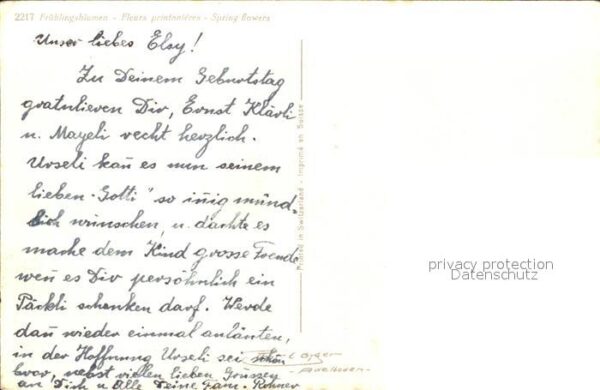 2217 Frühlingsblumen - Fleurs printanières - Spring flowers
Unser liebes Elsy!
Zu Deinem Geburtstag
gratulieren Dir, Ernst Klärli
u. Mayeli recht herzlich.
Urseli kañ es nun seinem
lieben „Gotti" so iñig münd-
lich wünschen, u. dachte es
mache dem Kind grosse Freude
weñ es Dir persöhnlich ein
Päckli schenken darf. Werde
dañ wieder einmal anläuten,
in der Hoffnung Urseli sei schön
brav, nebst vielen lieben Grüssen
an Dich u. Alle Deine Fam. Rohner
Printed in Switzerland - Imprimé en Suisse
privacy protection
Datenschutz